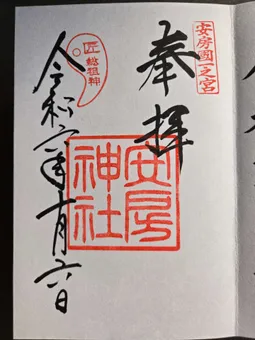 安房國一之宮
奉拝
安房
神社
匠 総祖神
令和六年十月六日